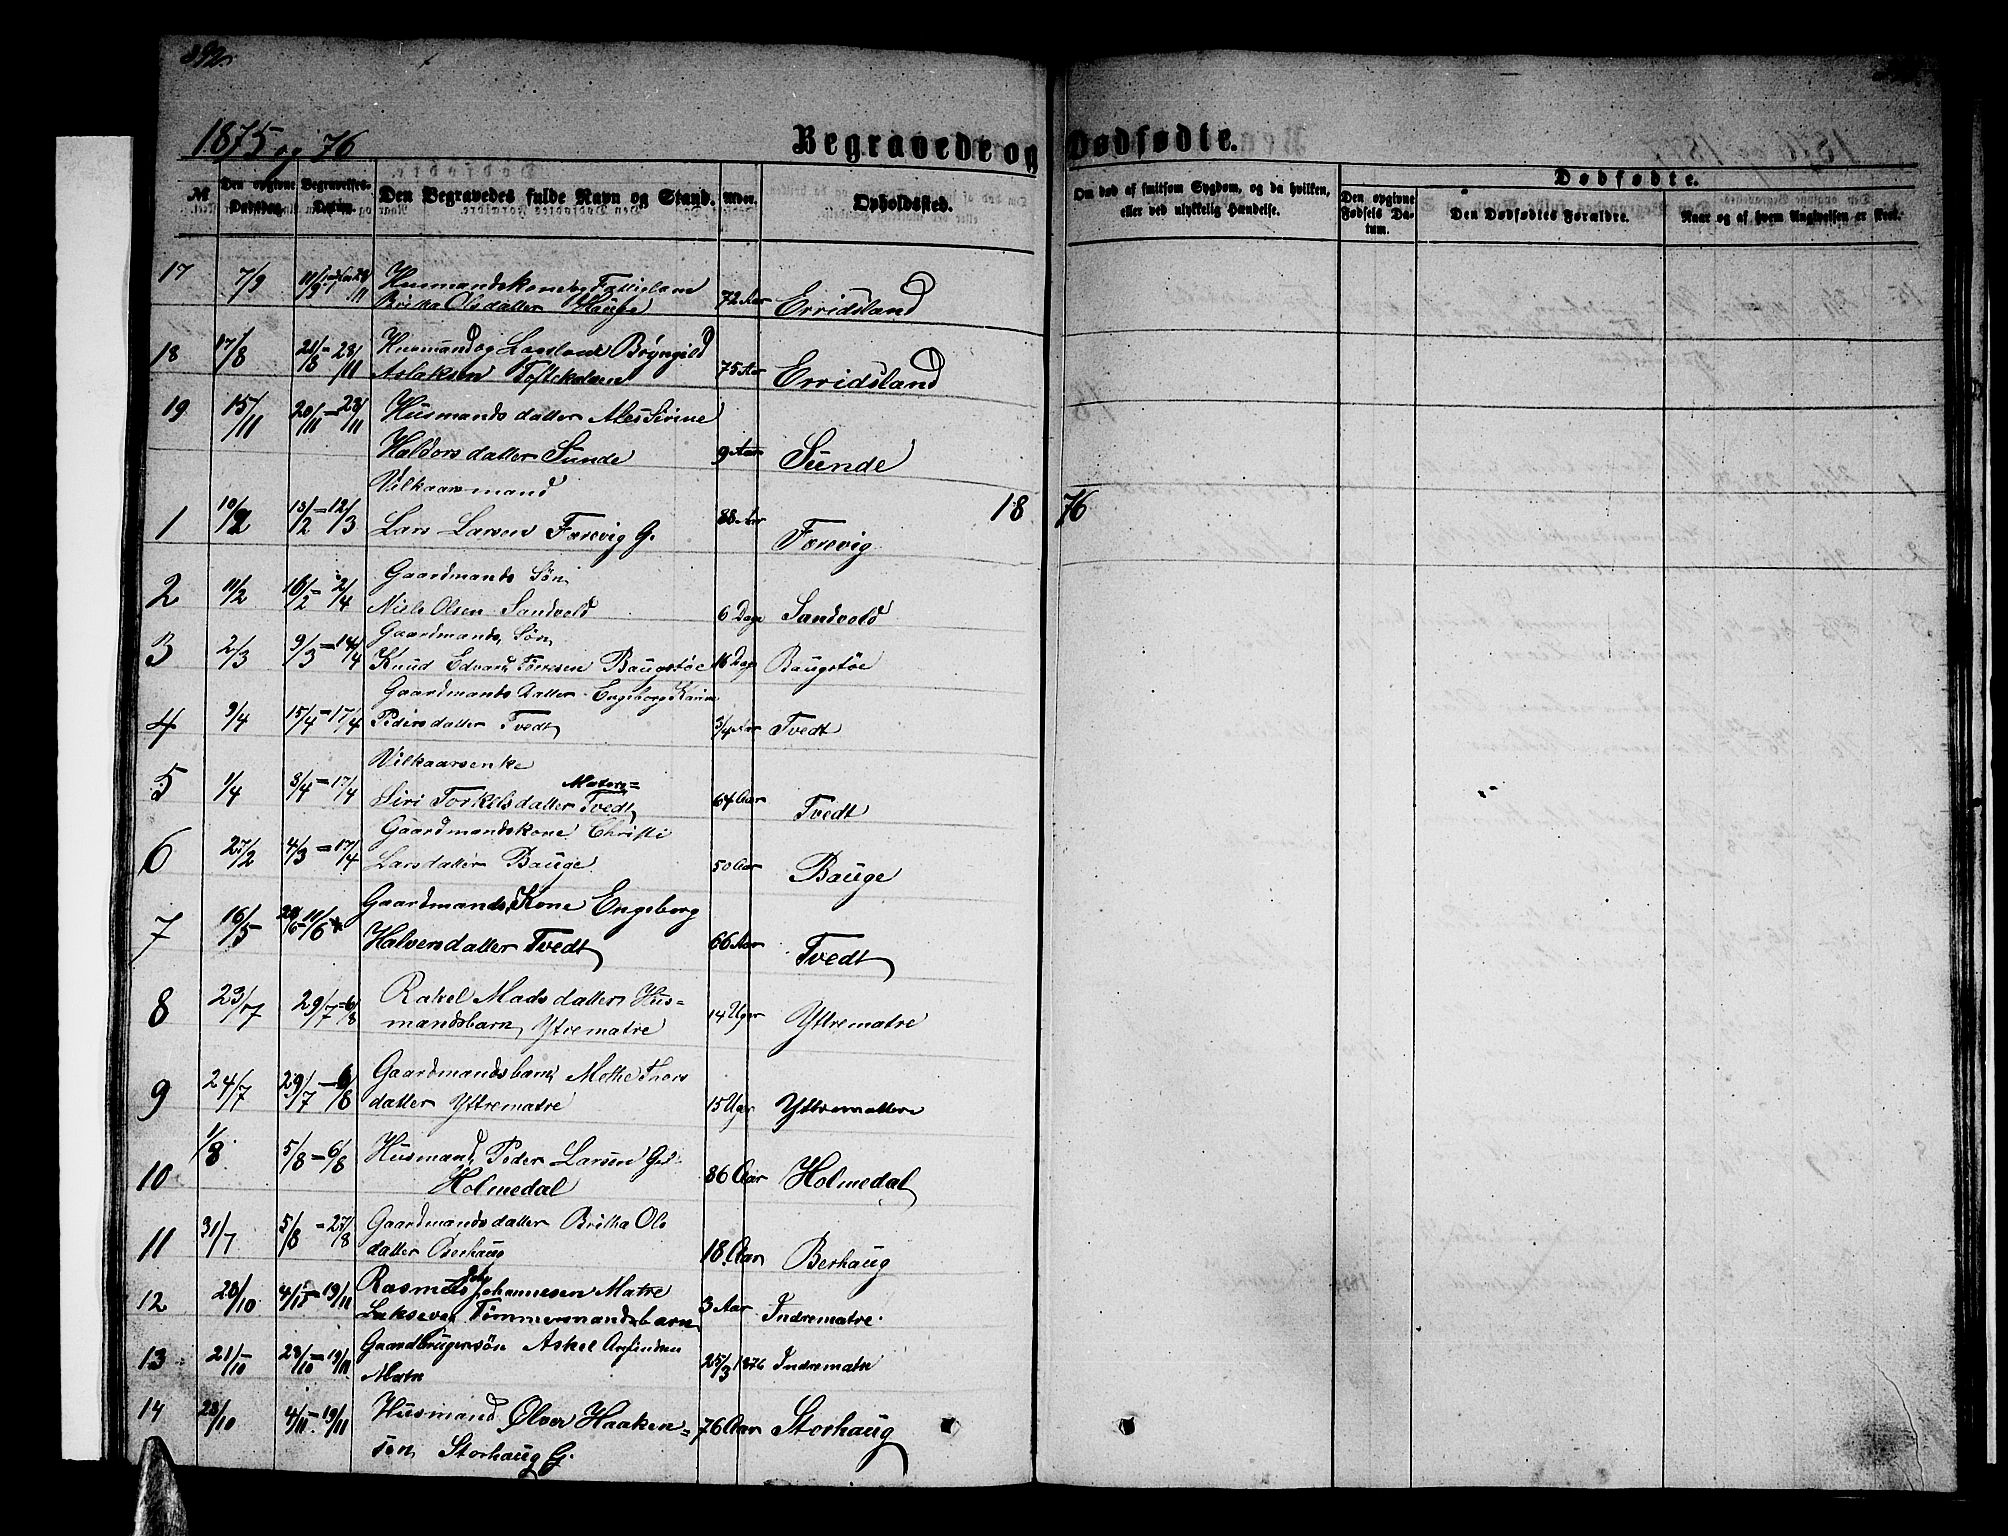 392.
1875 og 76
Begravede og Dødfødte.
№
Den opgivne Dødsdag.
Begravelses-Datum.
Den Begravedes fulde Navn og Stand.
Alder.
Opholdssted.
Om død af smitsom Sygdom, og da hvilken,
eller ved ulykkelig Hændelse.
Dødfødte.
Den opgivne Fødsels Datum.
Den Dødfødtes Forældre.
Naar og af hvem Angivelsen er skeet.
17 7/9 Husmandskone
Britha Olsdatter Hauge 72 Aar Erridsland
18 17/8 21/8 - 28/11 Husmand og Bryngild
Aslaksen 75 Aar Erridsland
19 15/11 20/11 - 28/11 Husmandsdatter
Haldorsdatter Sunde 9 Aar Sunde
1876
Vilkaarsmand
1 10/2 13/2 - 12/3 Lars Larsen Færevig G. 88 Aar Færevig
Gaardmands Søn
2 11/2 16/2 - 2/4 Niels Olsen Sandvold 6 Dage Sandvold
Gaardmands Søn
3 2/3 9/3 - 14/4 Knud Edvard Baugstøe 16 Dage Baugstøe
Gaardmands Datter Engeborg Karine
4 9/4 15/4 - 17/4 Pedersdatter Tvedt 3/4 Aar Tvedt
Vilkaarsenke
5 1/4 8/4 - 17/4 Siri Torkilsdatter Matere= Tvedt 64 Aar Tvedt
Gaardmandskone Christi
6 27/2 4/3 - 17/4 Larsdatter Bauge 50 Aar Bauge
Gaardmands Kone Engeborg
7 16/5 11/6 Halvorsdatter Tvedt 66 Aar Tvedt
8 23/7 29/7 - 6/8 Rakel Madsdatter Hus=
mandsbarn, Ytrematre 14 Uger Yttrematre
9 24/7 29/7 - 6/8 Gaardmandsbarn Thors
datter Yttrematre 15 Uger Yttrematre
10 1/8 5/8 - 6/8 Husmand Peder Larsen
Holmedal 86 Aar Holmedal
11 31/7 5/8 - 27/8 Gaardmandsdatter Britha Ols
datter Berhaug 18 Aar Berhaug
12 28/10 4/11 - 19/11 Johannesen Matre
Tømmermandsbarn 3 Aar Indrematre
13 21/10 28/10 - 19/11 Gaardbrugersøn Askel
Matre 25/3 1876 Indrematre
14 28/10 4/11 - 19/11 Husmand Ølver Haaken=
sen Storhaug G. 76 Aar Storhaug